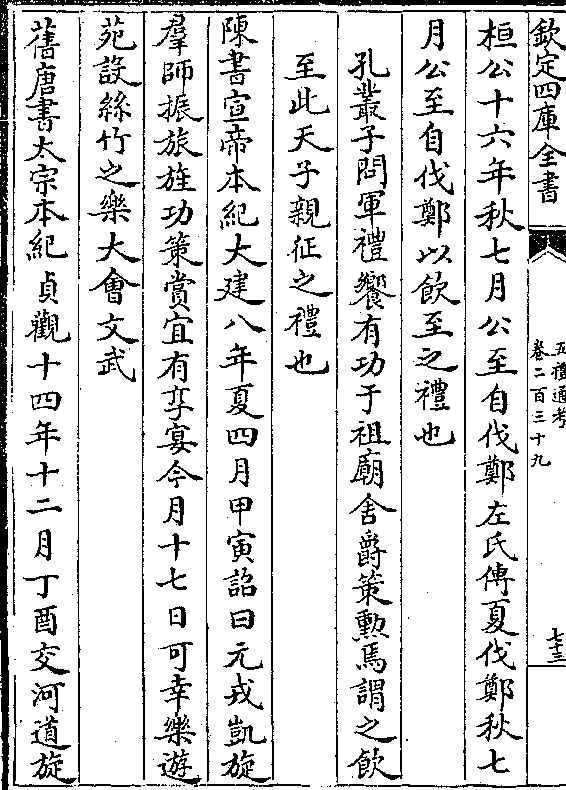 欽定四庫全書
五禮通考
卷二百三十九
七十三
桓公十六年秋七月公至自伐鄭左氏傳夏伐鄭秋七
月公至自伐鄭以飲至之禮也
孔叢子問軍禮饗有功于祖廟舍爵策勲焉謂之飲
至此天子親征之禮也
陳書宣帝本紀大建八年夏四月甲寅詔曰元戎凱旋
羣師振旅旌功策賞宜有享宴今月十七日可幸樂遊
苑設絲竹之樂大會文武
舊唐書太宗本紀貞觀十四年十二月丁酉交河道旋